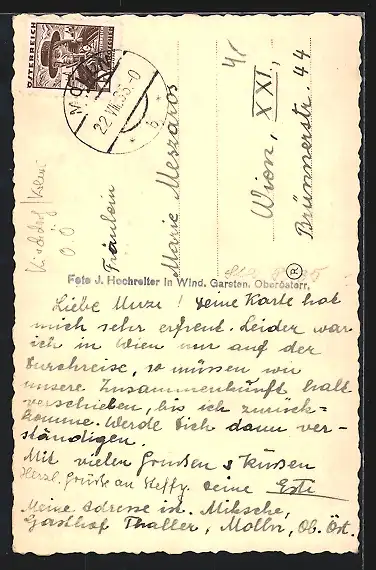 ÖSTERREICH
22.VIII.35
Fräulein
Marie Meszaros
Wien, XXI,
Brünnerstr. 44
Foto J. Hochreiter in Wind. Garsten, Oberösterr.
R
Liebe Muzi! Deine Karte hat
mich sehr erfreut. Leider war
ich in Wien nur auf der
Durchreise, so müssen wir
unsere Zusammenkunft halt
verschieben, bis ich zurück=
komme. Werde Dich dann ver-
ständigen.
Mit vielen Grüßen & Küßen
Herzl. Grüße an Steffy. Deine Este
Meine Adresse ist. Miksche,
Gasthof Thaller, Molln, Ob. Öst.